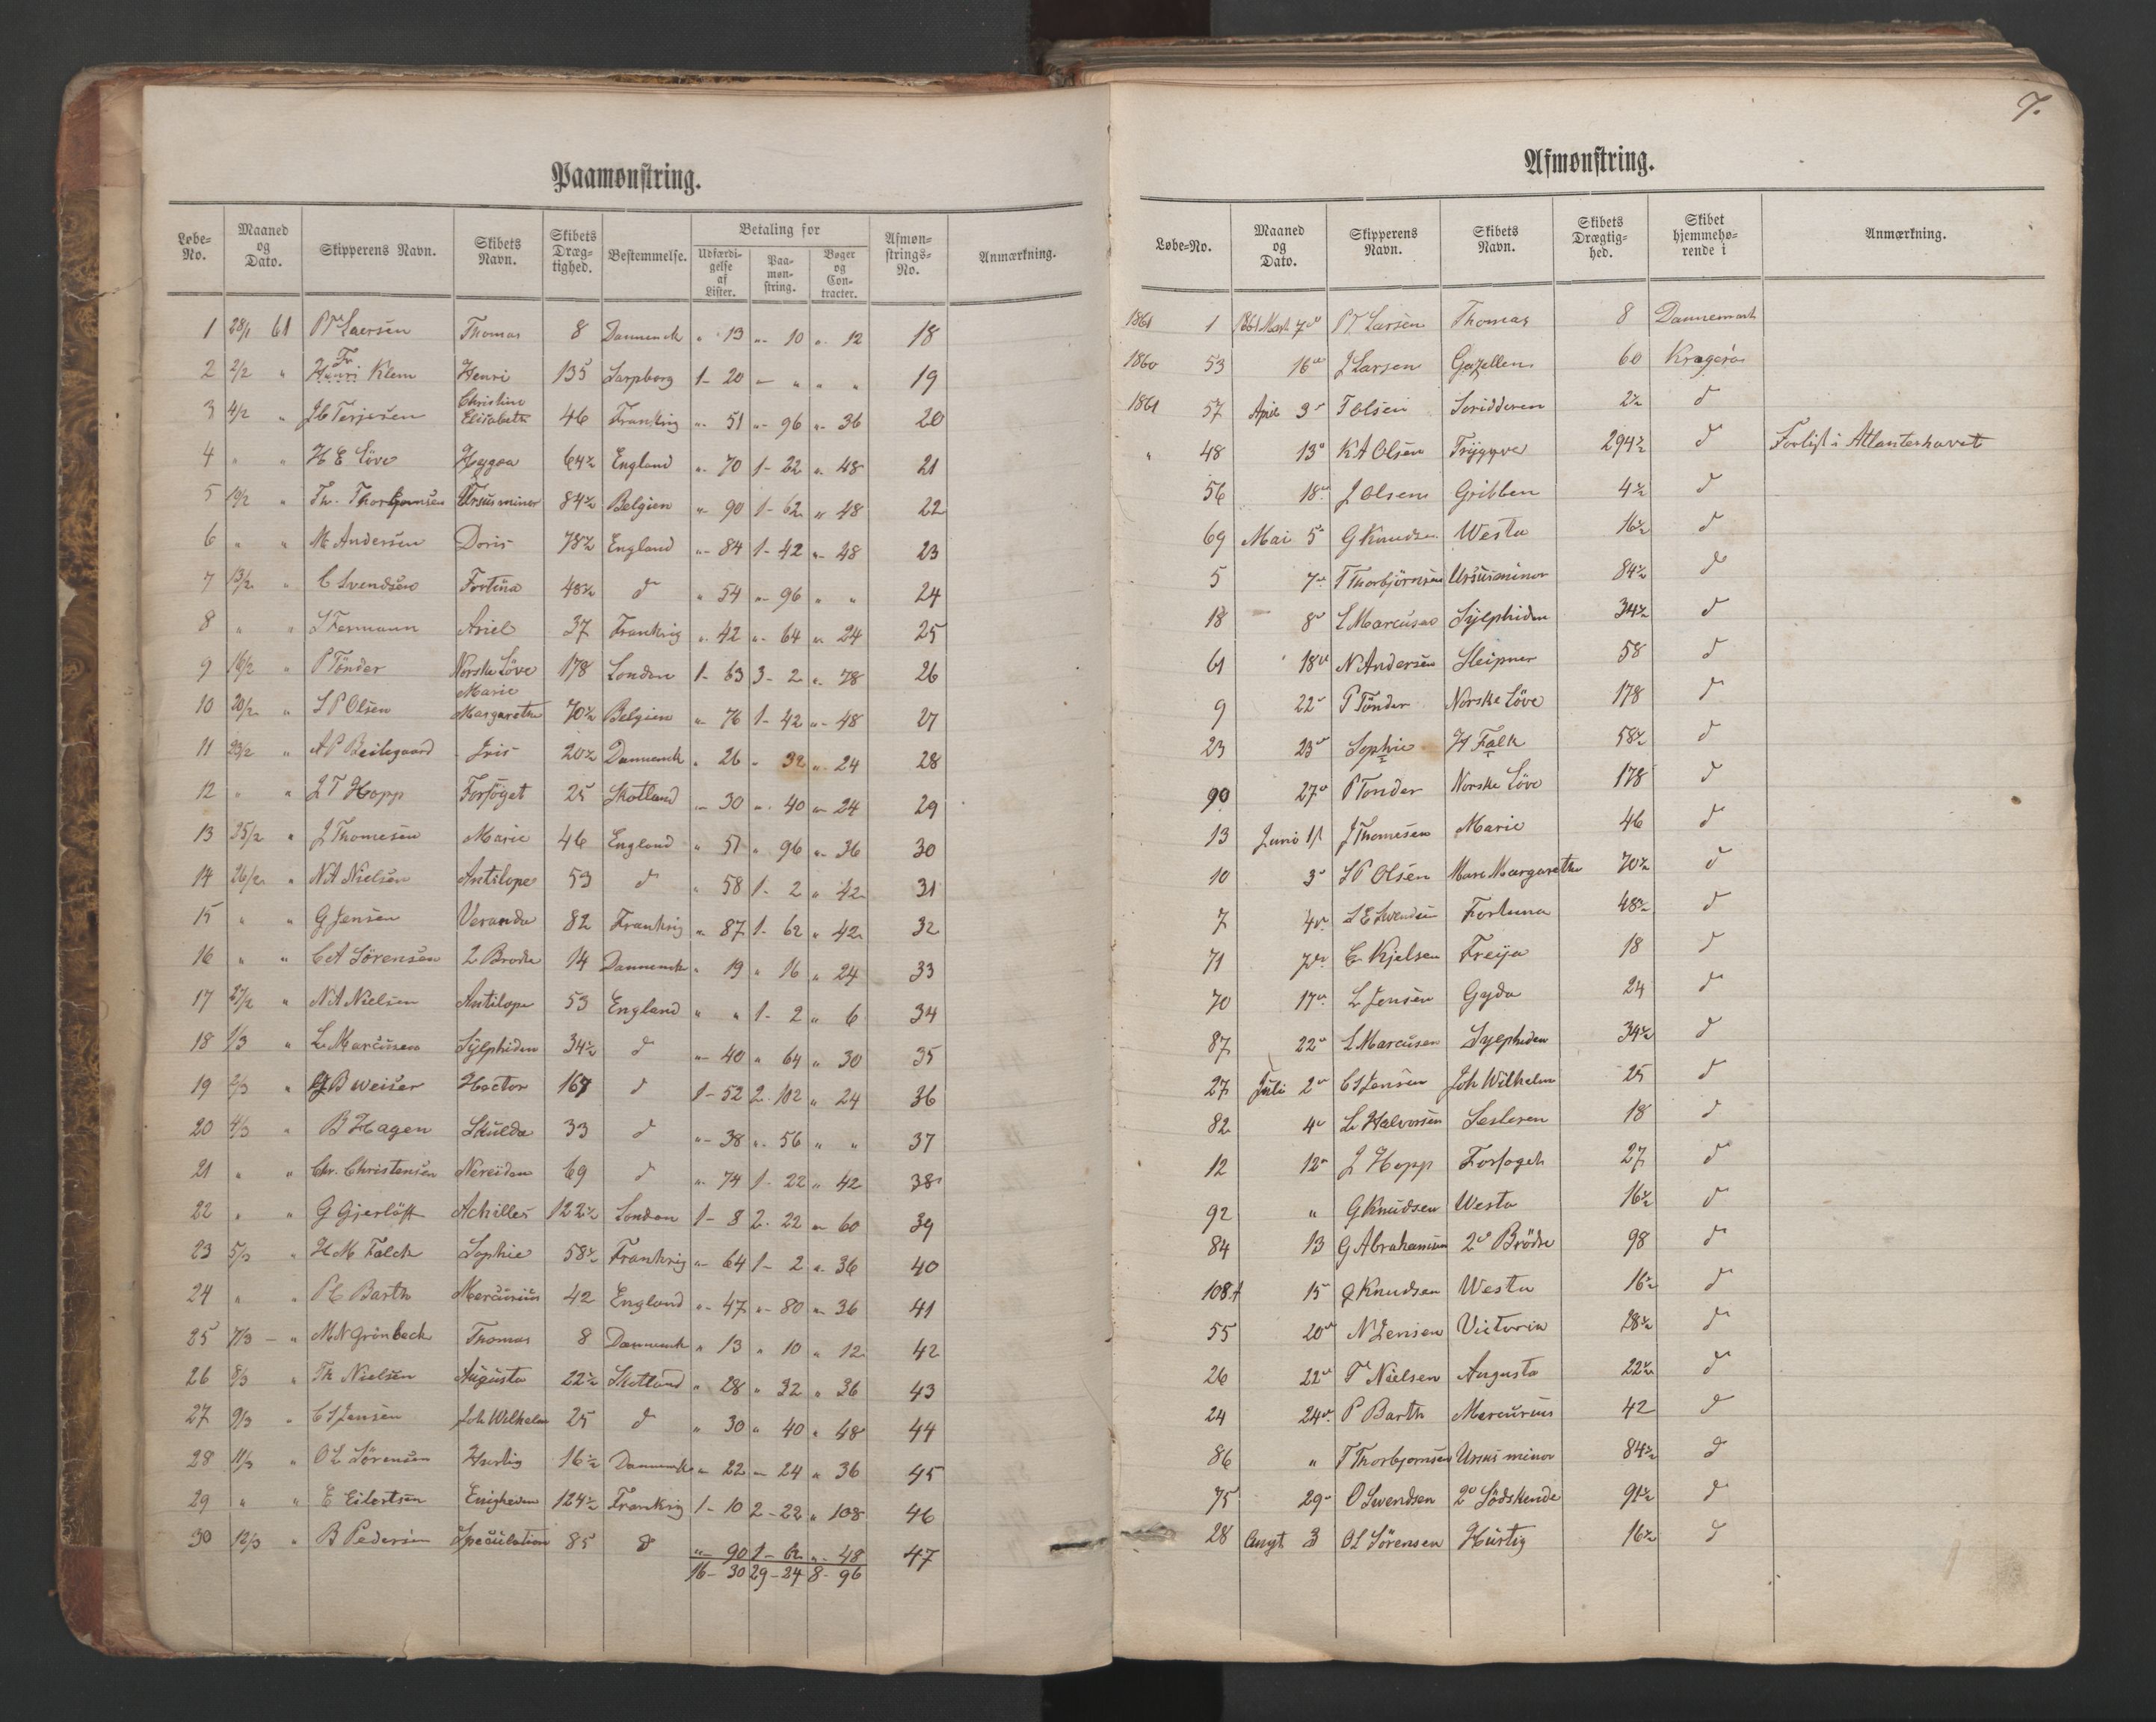 Paamønstring.
Løbe-No. Maaned og Dato. Skipperens Navn. Skibets Navn. Skibets Drægtighed. Bestemmelse. Betaling for Udfærdigelse af Lister. Paamønstring. Bøger og Contracter. Afmønstrings-No. Anmærkning.
1 28/1 61 P T Laersen Thomas 8 Danmork " 13 " 10 " 12 18
2 2/2 " Fr. Klem Henri 135 Sarpborg 1 - 20 - " " " 19
3 4/2 " J C Terjesen Christine Elisabeth 46 Frankrig " 51 " 96 " 36 20
4 " " H E Löve Hygea 64½ England " 70 1 - 22 " 48 21
5 19/2 " Th. Thorbjornsen Ursus minor 84½ Belgien " 90 1 - 62 " 48 22
6 " " M Andersen Doris 78½ England " 84 1 - 42 " 48 23
7 13/2 " C Svendsen Fortuna 48½ d " 54 " 96 " " 24
8 " " S Fermann Ariel 37 Frankrig " 42 " 64 " 24 25
9 16/2 " P Tönder Norske Löve 178 London 1 - 63 3 - 2 " 78 26
10 20/2 " S P Olsen Marie Margarethe 70½ Belgien " 76 1 - 42 " 48 27
11 23/2 " A P Beilegaard Iris 20½ Danmork " 26 " 32 " 24 28
12 " " J T Hopp Forsöget 25 Skotland " 30 " 40 " 24 29
13 25/2 " J Thomesen Marie 46 England " 51 " 96 " 36 30
14 26/2 " N A Nielsen Antilope 53 d " 58 1 - 2 " 42 31
15 " " G Jensen Veranda 82 Frankrig " 87 1 - 62 " 42 32
16 " " C A Sörensen 2 Brodre 14 Danmork " 19 " 16 " 24 33
17 27/2 " N A Nielsen Antilope 53 England " " 1 - 2 " 6 34
18 1/3 " L Marcusen Sylphiden 34½ d " 40 " 64 " 30 35
19 2/3 " J B Weiser Hector 167 d 1 - 52 2 - 102 " 24 36
20 4/3 " B Hagen Skulda 33 d " 38 " 56 " " 37
21 " " Chr. Christensen Nereiden 69 d " 74 1 - 22 " 42 38
22 " " G Gjerlöft Achilles 122½ London 1 - 8 2 - 22 " 60 39
23 5/3 " H M Falck Sophie 58½ Frankrig " 64 1 - 2 " 36 40
24 " " P C Barth Mercurius 42 England " 47 " 80 " 36 41
25 7/3 - " M N Grönbeck Thomas 8 Danmork " 13 " 10 " 12 42
26 8/3 " Th Nielsen Augusta 22½ Skotland " 28 " 32 " 36 43
27 9/3 " C S Jensen Joh Wilhelm 25 d " 30 " 40 " 48 44
28 11/3 " O L Sörensen Hurtig 16½ Danmork " 22 " 24 " 36 45
29 " " E Eilertsen Enigheden 124½ Frankrig 1 - 10 2 - 22 " 108 46
30 12/3 " B Pedersen Speculation 85 d " 90 1 - 62 " 48 47
16 - 30 29 - 24 8 - 96
7.
Afmønstring.
Løbe-No. Maaned og Dato. Skipperens Navn. Skibets Navn. Skibets Drægtighed. Skibet hjemmehørende i Anmærkning.
1861 1 1861 Mart 7d P T Larsen Thomas 8 Dannemark
1860 53 16d J Larsen Gazellen 60 Kragerø
1861 57 April 3d T Olsen Soridderen 2½ d
" 48 13d K A Olsen Tryggve 294½ d Forlist i Atlanterhavet
56 18d J Olsen Gribben 4½ d
69 Mai 5d G Knudsen Westa 16½ d
5 7d T Thorbjörnsen Ursus minor 84½ d
18 8d L Marcusen Sylphiden 34½ d
61 18d N Andersen Sleipner 58 d
9 22d P Tönder Norske Löve 178 d
23 23d Sophie H Falk 58½ d
90 27d P Tonder Norske Löve 178 d
13 Juni 1st J Thomesen Marie 46 d
10 3d S P Olsen Mare Margarethe 70½ d
7 4d S E Svendsen Fortuna 48½ d
71 7d E Kjelsen Freija 18 d
70 17d L Jensen Gyda 24 d
87 22d L Marcusen Sylphiden 34½ d
27 Juli 2d C S Jensen Joh Wilhelm 25 d
82 4d L Halvorsen Lesleren 18 d
12 12d J Hopp Forsoget 27 d
92 " G Knudsen Westa 16½ d
84 13 G Abrahamsen 2d Brödre 98 d
108 15 G Knudsen Westa 16½ d
55 20d N Jensen Victoria 28½ d
26 22d T Nielsen Augusta 22½ d
24 24d P Barth Mercurius 42 d
86 " T Thorbjornsen Ursus minor 84½ d
75 29d O Svendsen 2d Södskende 91½ d
28 Augt 3 O L Sörensen Hurtig 16½ d